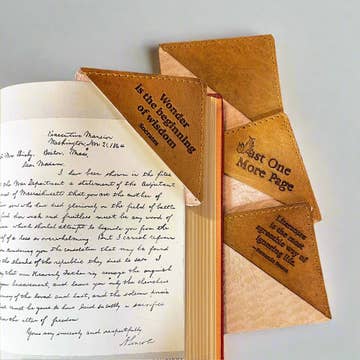 Executive Mansion
Washington, Nov 21, 1864
Mrs Bixby, Boston, Mass,
Dear Madam,
I have been shown in the files
the War Department a statement of the Adjutant
of Massachusetts that you are the mother of
sons who have died gloriously on the field of battle
feel how weak and fruitless must be any word of
which should attempt to beguile you from the
of a loss so overwhelming. But I cannot refrain
tendering you the consolation that may be found
the thanks of the republic they died to save. I
that our Heavenly Father may assuage the anguish
bereavement, and leave you only the cherished
of the loved and lost, and the solemn pride
must be yours to have laid so costly a sacrifice
the altar of freedom
Yours very sincerely and respectfully,
A. Lincoln
Wonder
is the beginning
of wisdom
Socrates
Just One
More Page
Literature
is the most
agreeable way of
ignoring life.